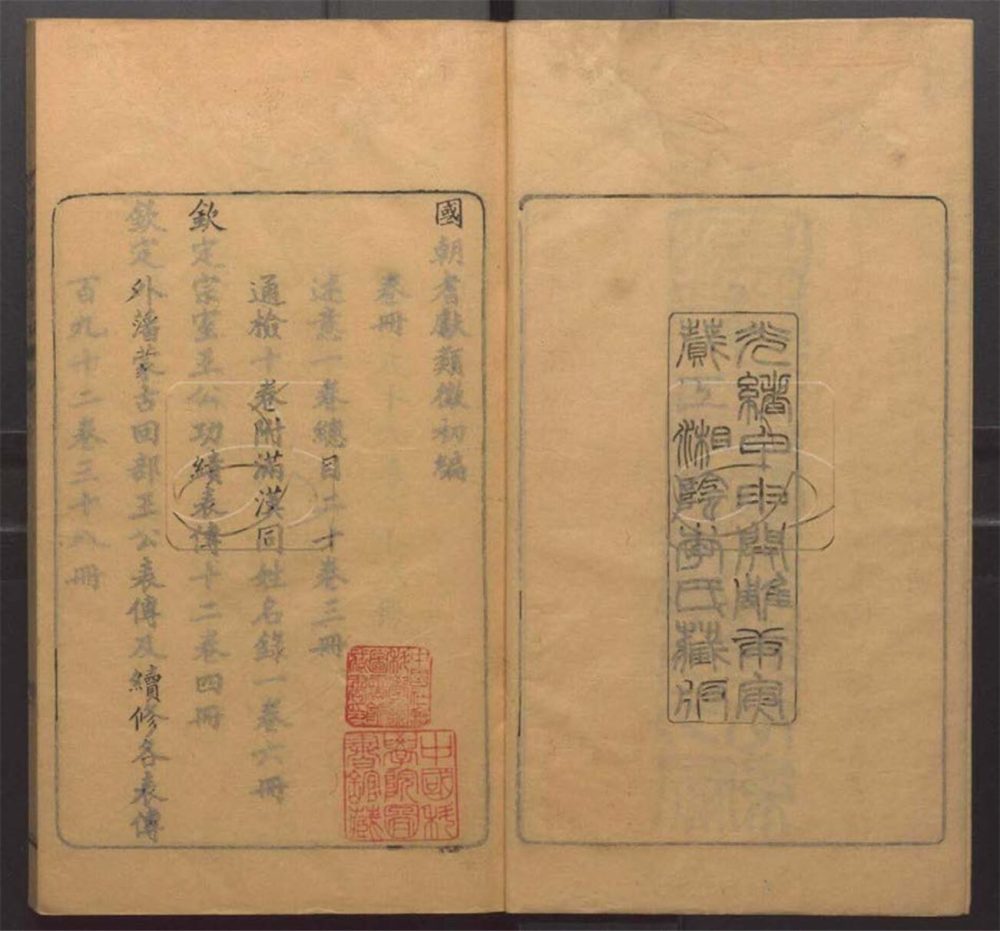 光緒甲申開雕庚寅
蕆工湘陰李氏藏版
國朝耆獻類徵初編
卷冊
述意一卷總目二十卷三冊
通檢十卷附滿漢同姓名錄一卷六冊
欽定宗室王公功績表傳十二卷四冊
欽定外藩蒙古回部王公表傳及續修各表傳
百九十二卷三十八冊
中國科
學院圖
書館藏